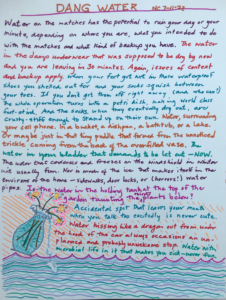 DANG WATER
Water on the matches has the potential to ruin your day or your
minute, depending on where you are, what you intended to do
with the matches and what kind of backup you have. The water
in the dang underwear that was supposed to be dry by now
and you are leaving in 30 minutes. Again, issues of context
and backup apply. When your foot got wet in those waterproof
shoes you shelled out for and your socks squish between
your toes. If you don't get them off right away (and where?)
the whole operation turns into a petri dish, making world class
foot-stink. And the socks, when they eventually dry out, are
crusty-stiff enough to stand up on their own. Water, surrounding
your cell phone, in a bucket, a dishpan, a bathtub, or a lake.
Or maybe just in that tiny puddle that formed from the unnoticed
trickle coming from the back of the overfilled vase. The
water in your bladder that demands to be let out - NOW.
The water that condenses and freezes on the windshield in winter
isn't usually fun. Nor is some of the ice that makes itself in the
environs of the home - sidewalks, door locks, or (horrors!) water
pipes. Is the water in the holding tank at the top of the
garden taunting the plants below?
Accidental spit that leaves your mouth
when you talk too excitedly is never cute.
Water hissing like a dragon out from under
the hood of the car always occasions an un-
planned and probably unwelcome stop. Water with
microbial life in it that makes you sick - never fun.